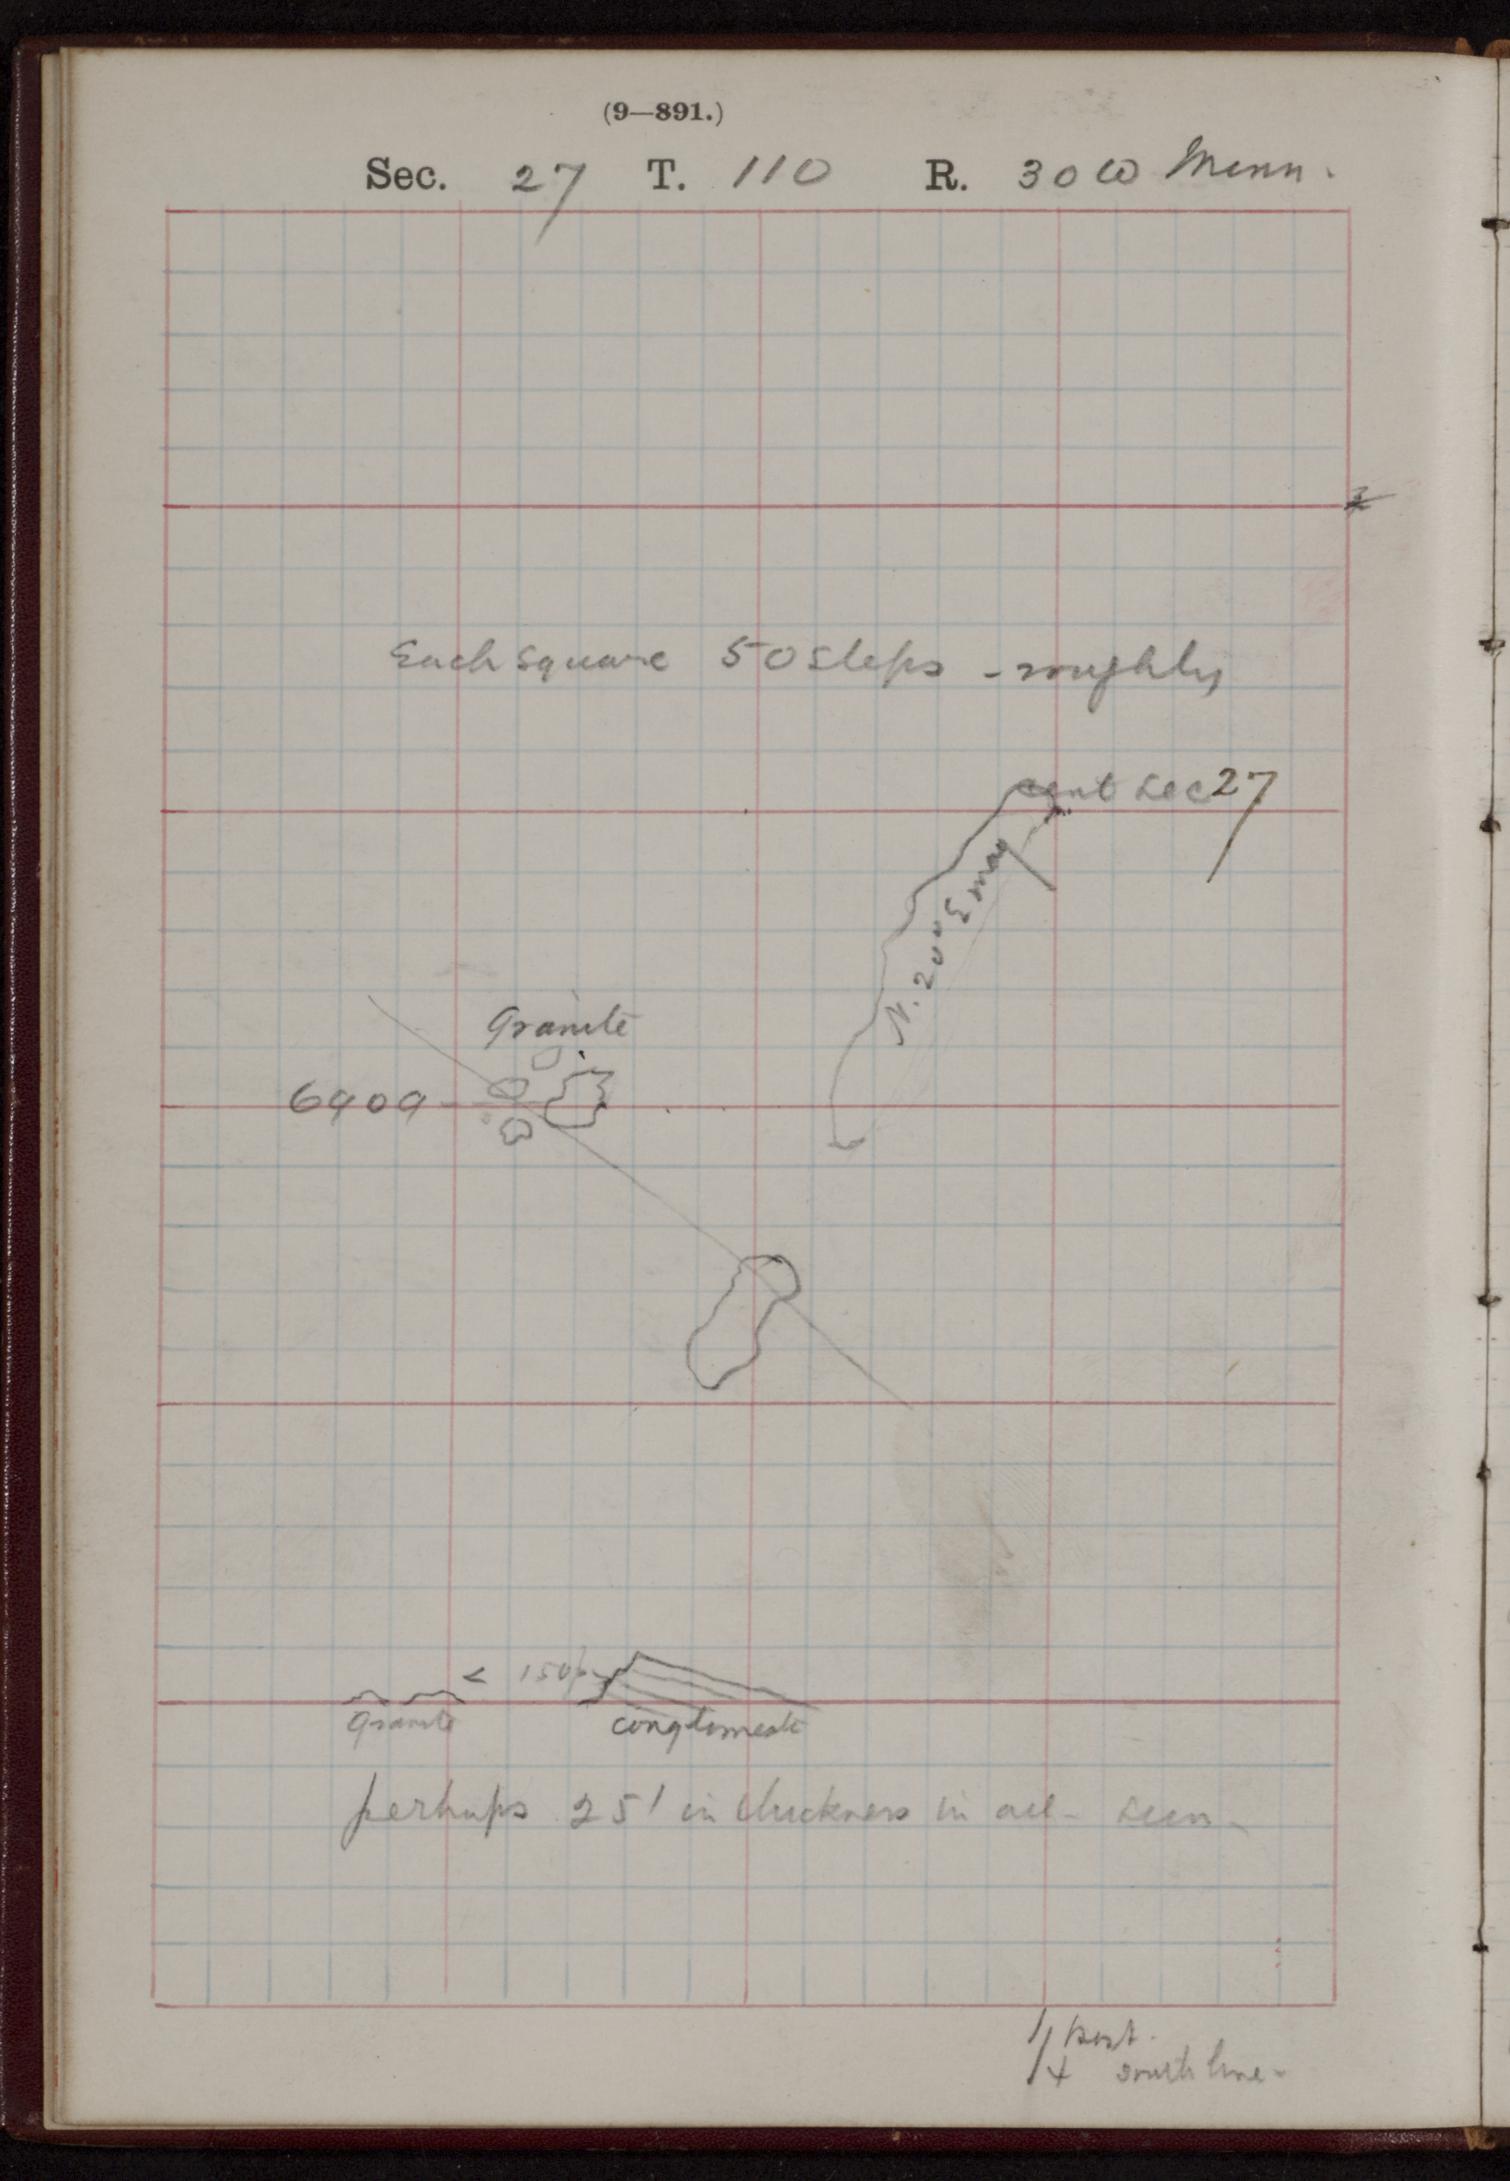 (9—891.)
Sec. 27 T. 110 R. 30 W Minn.
Each square 50 steps - roughly
cent sec 27
N. 20° E mag
Granite
6909
< 150
Granite
conglomerate
perhaps 25' in thickness in all - seen -
1/4 post.
south line -